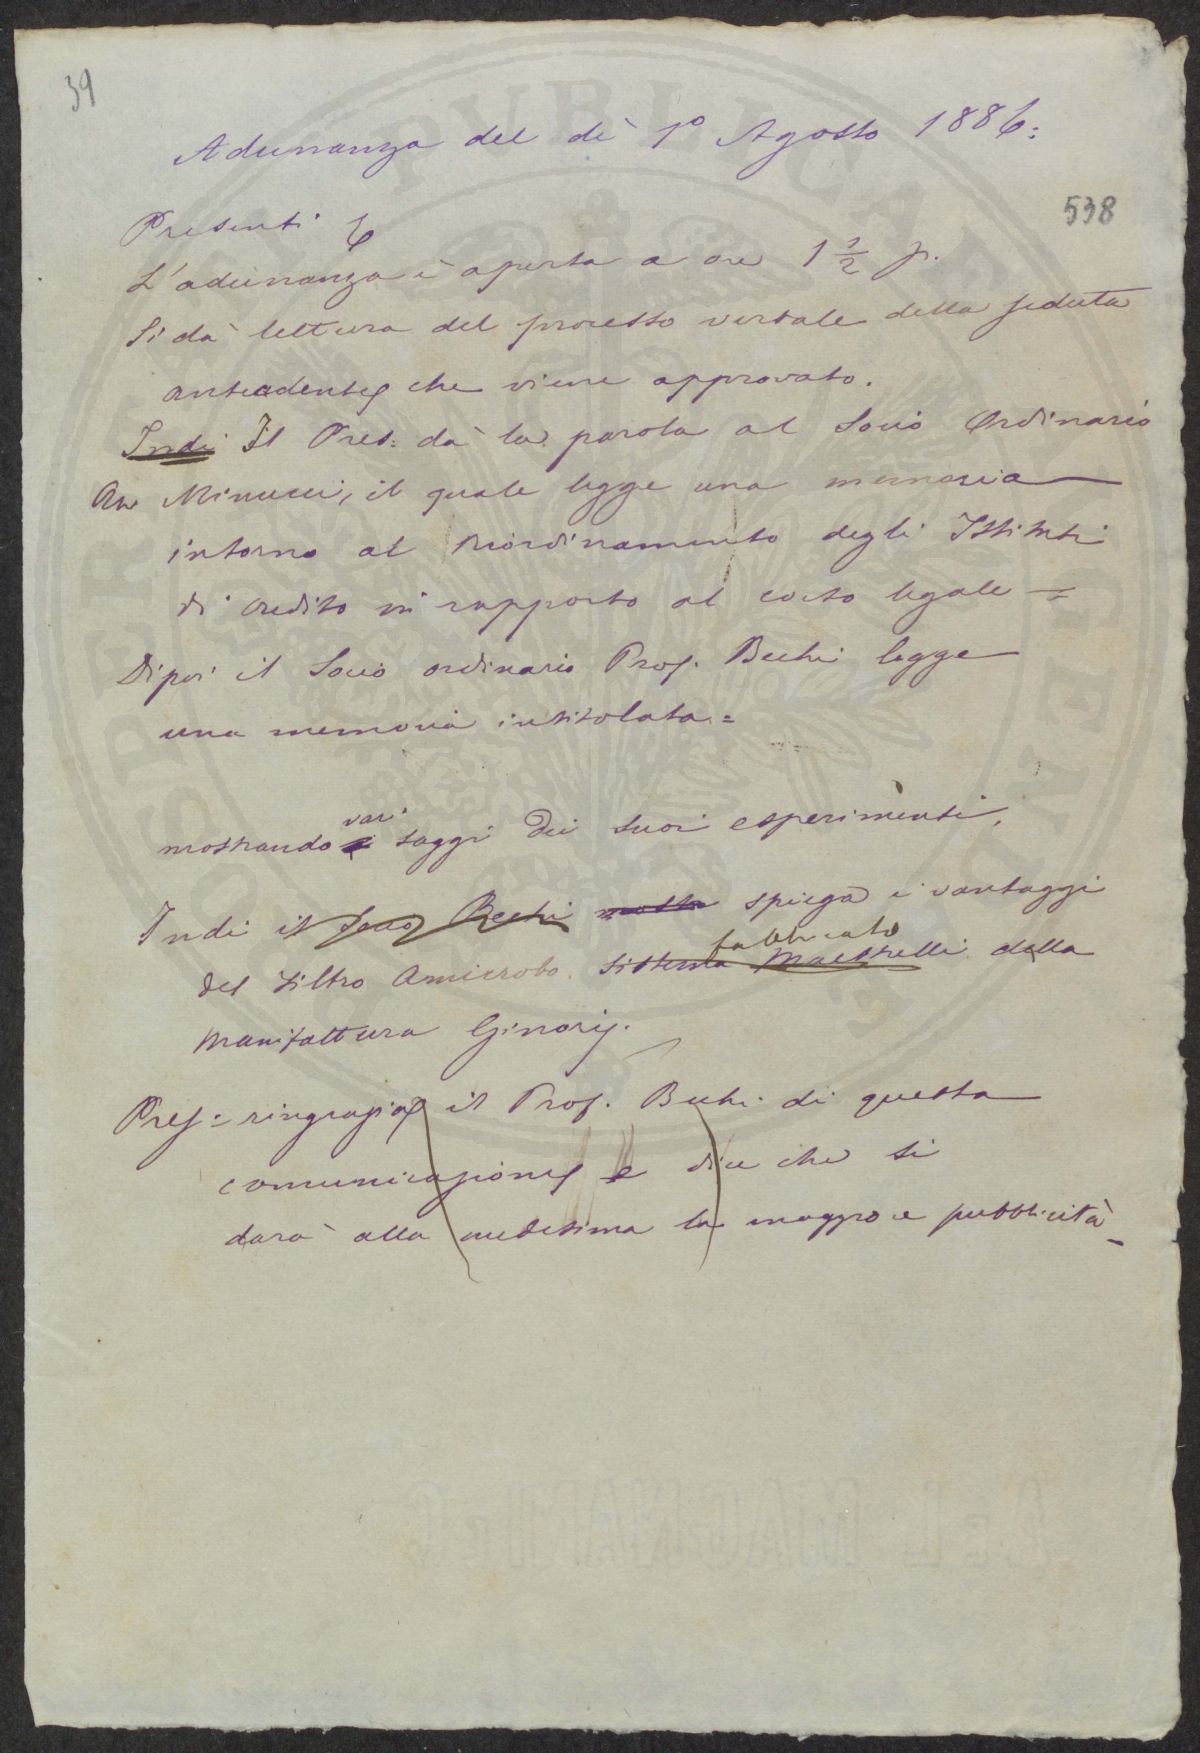 39
Adunanza del dì 1º Agosto 1886:
538
Presenti 6
L'adunanza è aperta a ore 1 1/2 p.
Si dà lettura del processo verbale della seduta
antecedente che viene approvato.
Indi Il Pres: dà la parola al Socio Ordinario
Av Minucci, il quale legge una memoria
intorno al Riordinamento degli Istituti
di credito in rapporto al corso legale =
Dipoi il Socio ordinario Prof. Bechi legge
una memoria intitolata =
vari
mostrando i saggi dei suoi esperimenti.
Indi il Socio Bechi mostra spiega i vantaggi
fabbricato
del Filtro Amicrobo sistema Maestrelli della
Manifattura Ginori.
Pres: ringrazia il Prof. Bechi di questa
comunicazione e dice che si
darà alla medesima la maggiore pubblicità